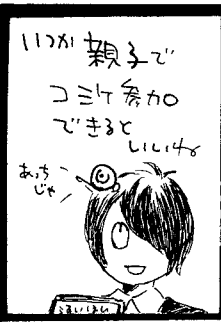 いつか親子で
コミケ参加
できると
いいね
あっち
じゃ